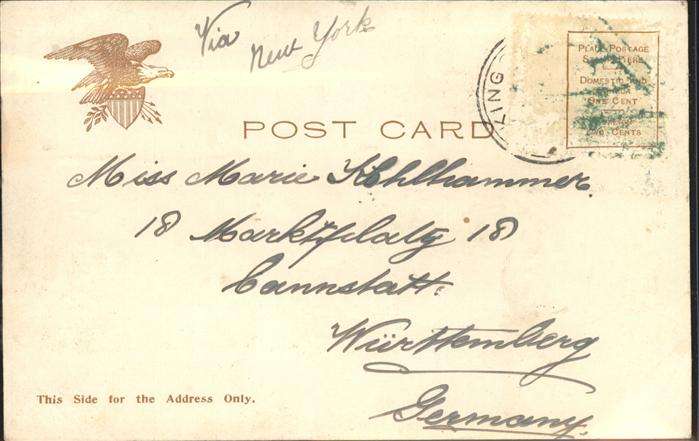 Via
New York
PLACE POSTAGE
STAMP HERE
DOMESTIC AND
ONE CENT
TWO CENTS
LING
POST CARD
Miss Marie Kohlhammer.
18 Marktplatz 18
Cannstatt.
Württemberg
Germany.
This Side for the Address Only.